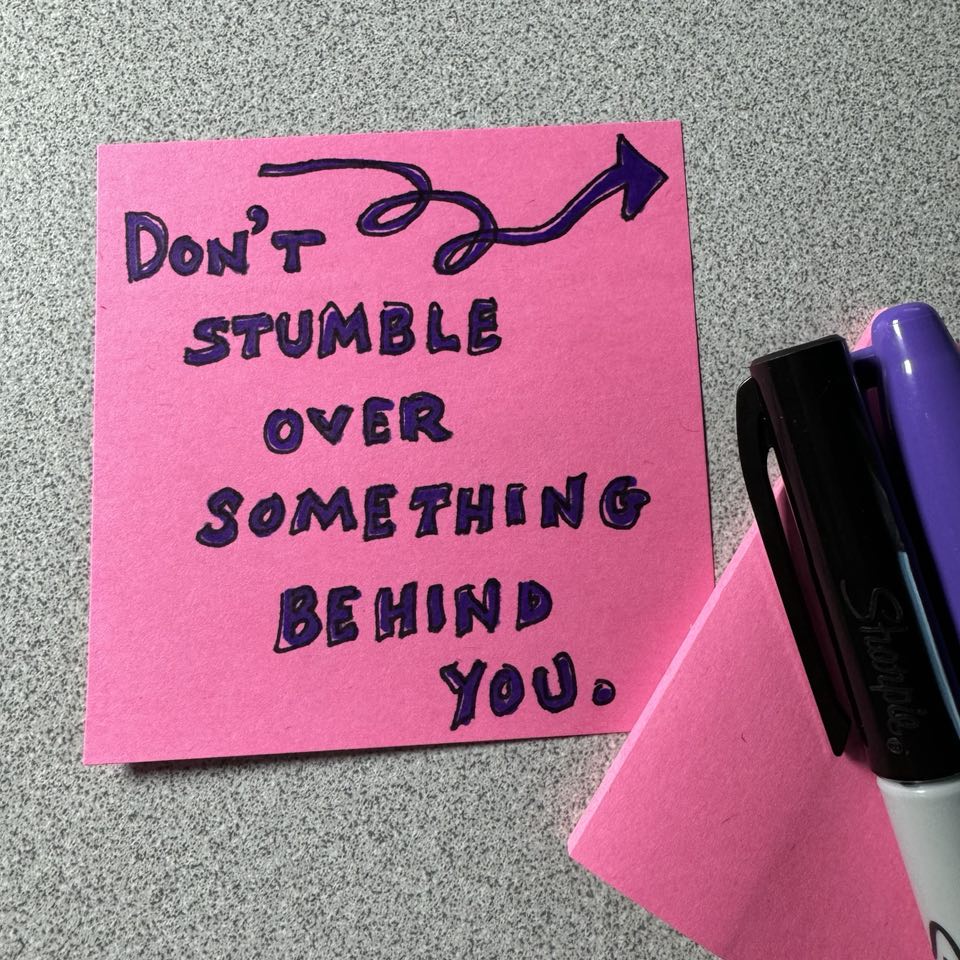 Don't
STUMBLE
OVER
SOMETHING
BEHIND
YOU.
Sharpie®